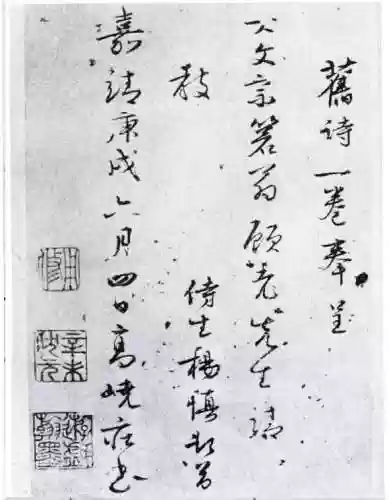 舊詩一卷奉呈
大文宗箬翁顧老先生請
教
侍生楊慎頓首
嘉靖庚戌六月四日高嶢莊書
用修
辛未狀元